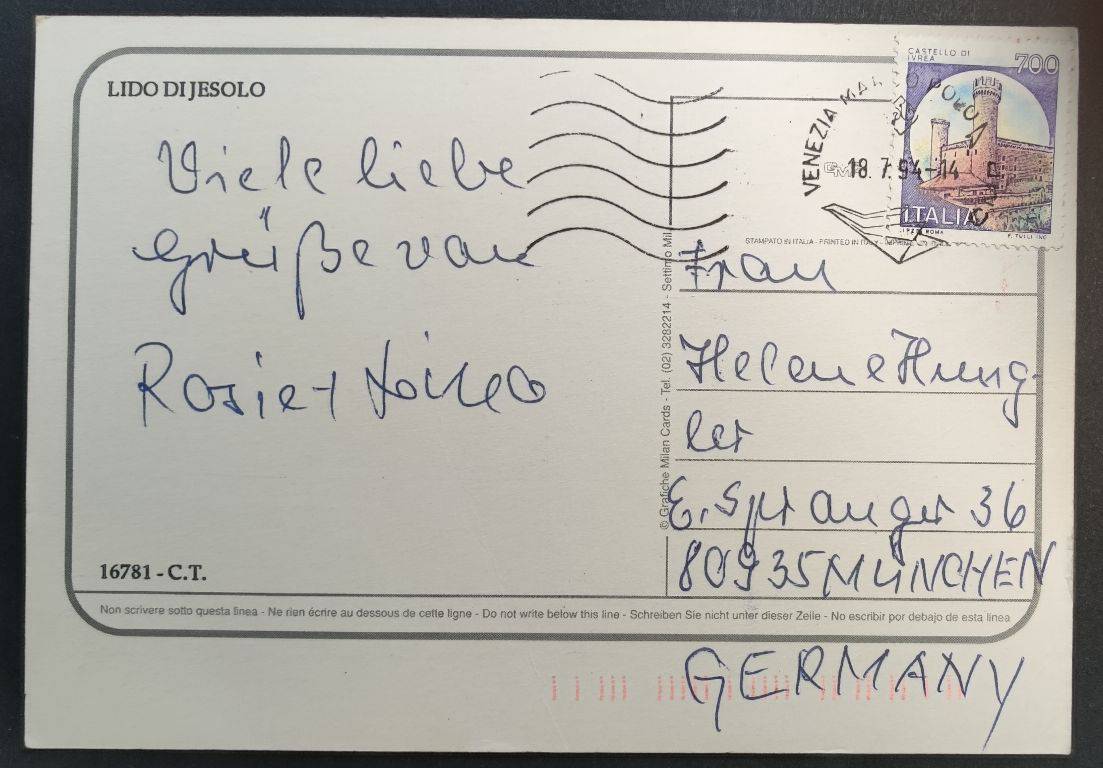 LIDO DI JESOLO
Viele liebe
Grüße von
Rosi e +
16781 - C.T.
CASTELLO DI
IVREA
700
VENEZIA MARCO POLO
18.7.94-14
ITALIA
I.P.Z.S. ROMA
F. TULLI INC.
STAMPATO IN ITALIA - PRINTED IN ITALY
© Grafiche Milan Cards - Tel. (02) 3282214 - Settimo Mil
Frau
Helene Hung-
ler
E. Spranger 36
80935 MÜNCHEN
Non scrivere sotto questa linea - Ne rien écrire au dessous de cette ligne - Do not write below this line - Schreiben Sie nicht unter dieser Zeile - No escribir por debajo de esta linea
GERMANY